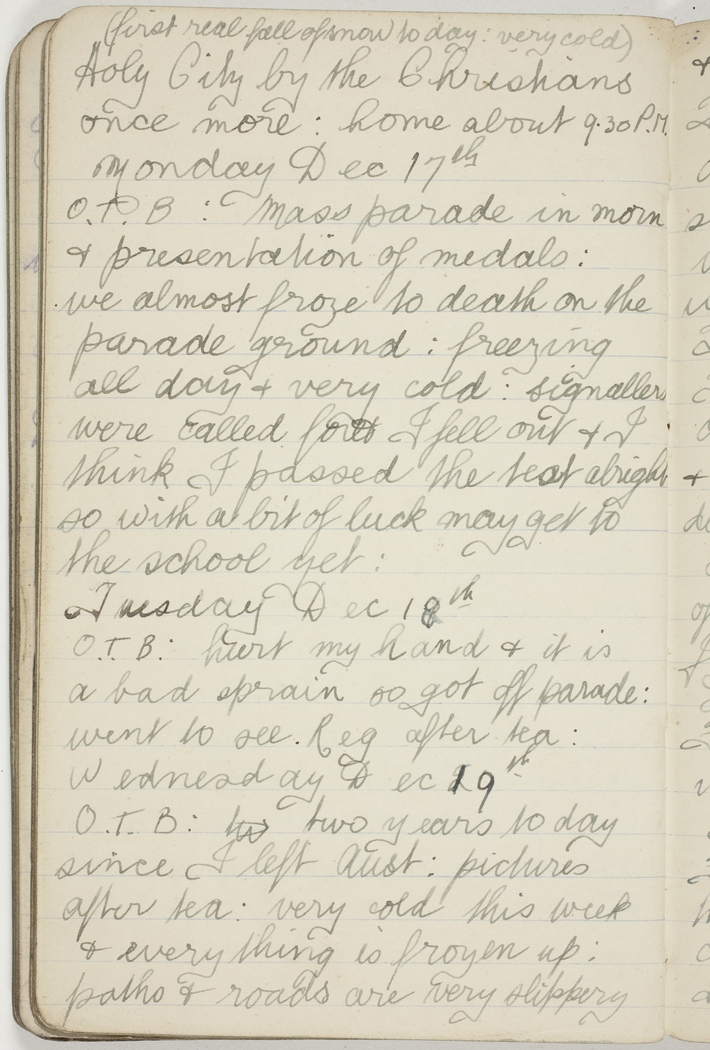 (first real fall of snow today: very cold)
Holy City by the Christians
once more: home about 9.30 P.M.
Monday Dec 17th
O.T.B: Mass parade in morn
& presentation of medals:
we almost froze to death on the
parade ground: freezing
all day & very cold: signallers
were called for I fell out & I
think I passed the test alright
so with a bit of luck may get to
the school yet:
Tuesday Dec 18th
O.T.B: hurt my hand & it is
a bad sprain so got off parade:
went to see Reg after tea:
Wednesday Dec 19th
O.T.B: two years today
since I left Aust: pictures
after tea: very cold this week
& everything is frozen up:
paths & roads are very slippery